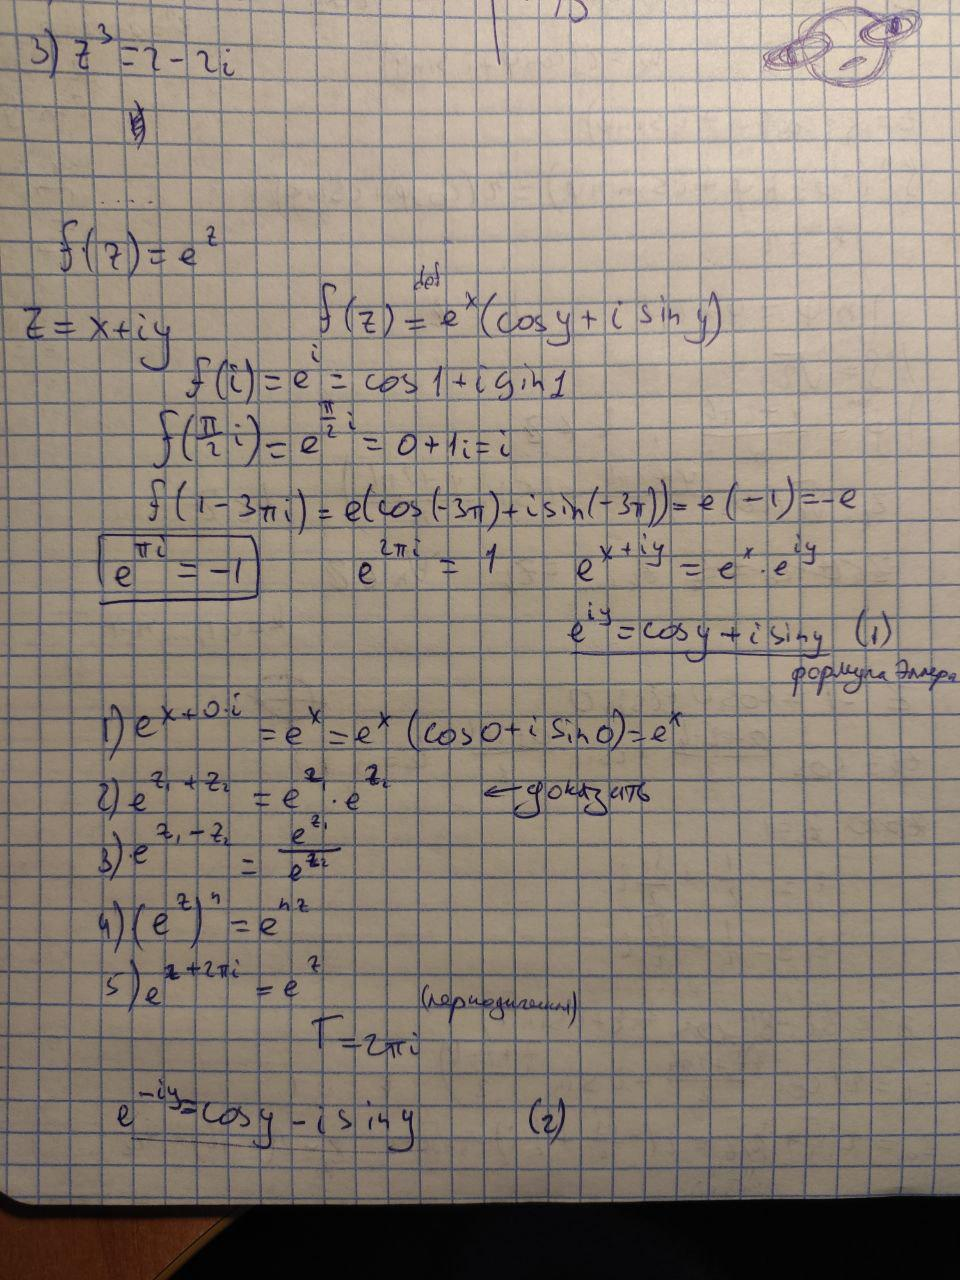 3) z³ = 2 - 2i
.....
f(z) = e^z
z = x+iy f(z) =^{def} e^x(cos y + i sin y)
f(i) = e^i = cos 1 + i sin 1
f(π/2 i) = e^{π/2 i} = 0 + 1i = i
f(1 - 3πi) = e(cos(-3π) + i sin(-3π)) = e(-1) = -e
e^{πi} = -1 e^{2πi} = 1 e^{x+iy} = e^x · e^{iy}
e^{iy} = cos y + i sin y (1)
формула Эйлера
1) e^{x+0·i} = e^x = e^x (cos 0 + i sin 0) = e^x
2) e^{z₁+z₂} = e^{z₁} · e^{z₂} ← доказать
3) e^{z₁-z₂} = e^{z₁}/e^{z₂}
4) (e^z)^n = e^{nz}
5) e^{z+2πi} = e^z
T = 2πi
e^{-iy} = cos y - i sin y (2)